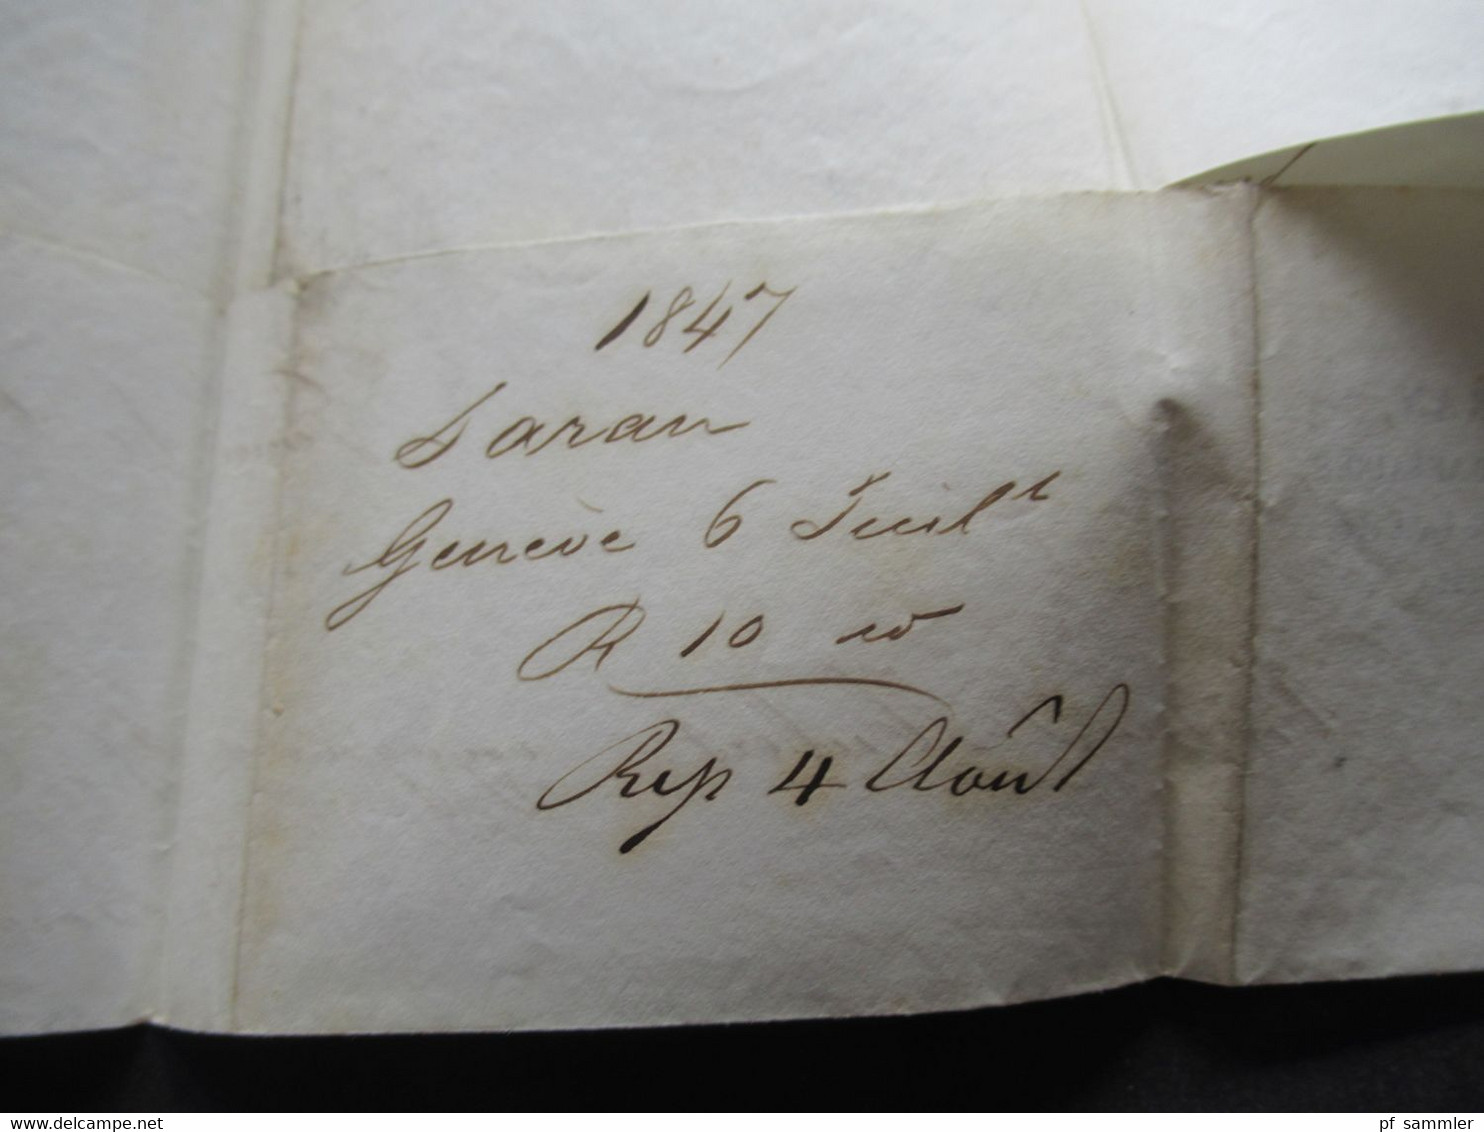 1847
Saran
Genève 6 Juil^t
R 10 do
Rep 4 Août
delcampe.net
pf_sammler